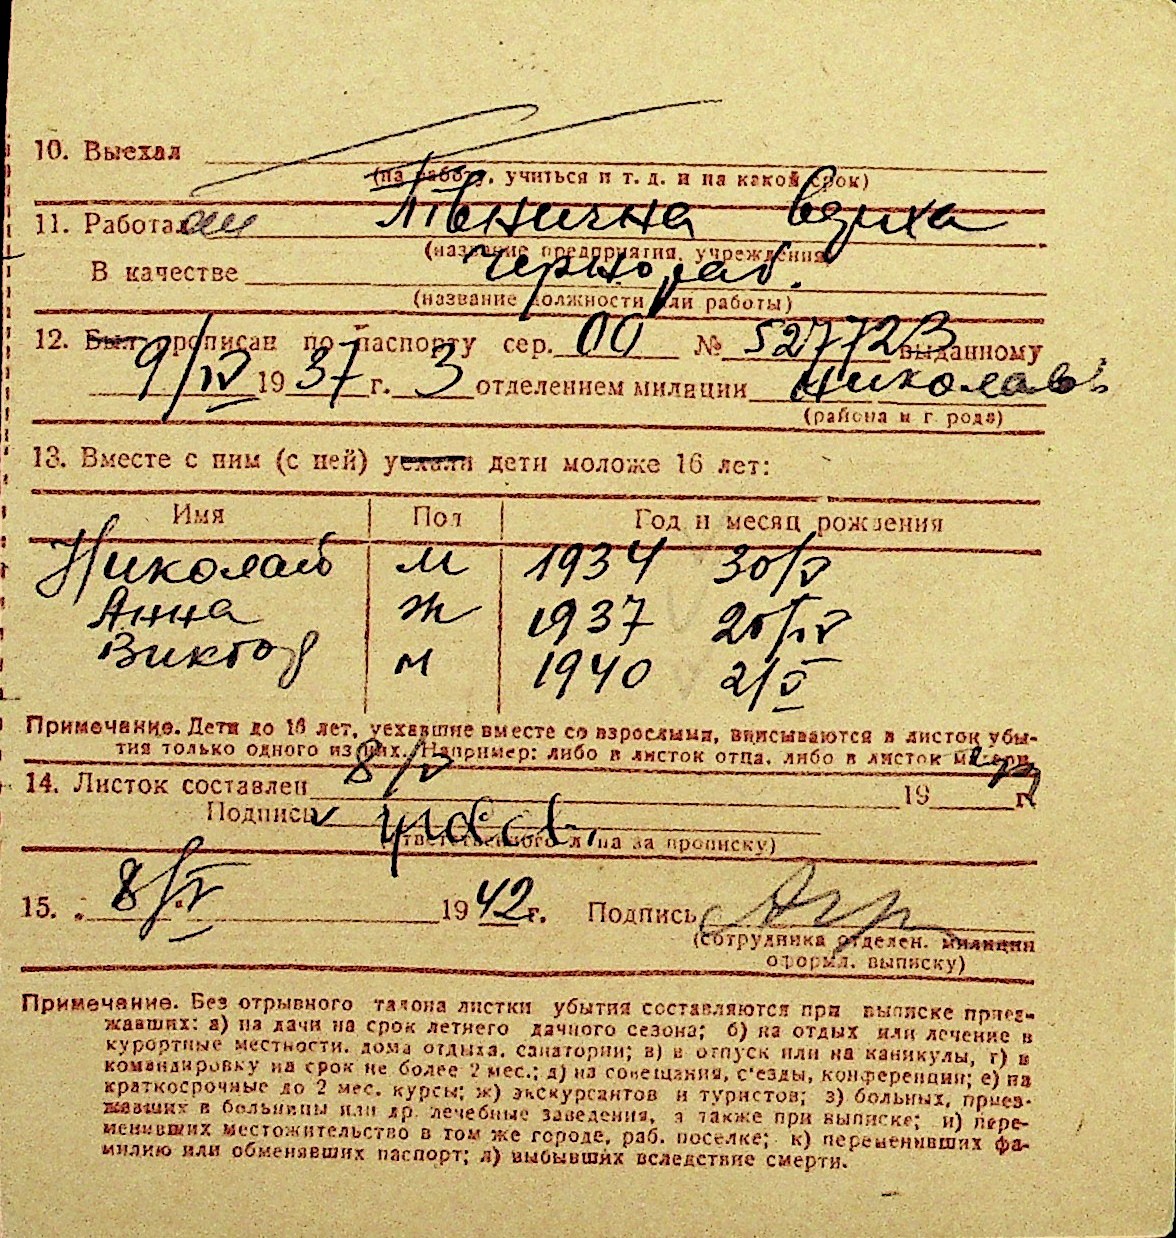 10. Выехал
(на работу, учиться и т. д. и на какой срок)
11. Работал
(название предприятия, учреждения)
В качестве чернораб.
(название должности или работы)
12. Был прописан по паспорту сер. ОО № 527723 выданному
9/IV 1937 г. 3 отделением милиции Николаев
(района и города)
13. Вместе с ним (с ней) уехали дети моложе 16 лет:
Имя Пол Год и месяц рождения
Николай м 1934 30/V
Анна ж 1937 20/IV
Виктор м 1940 2/V
Примечание. Дети до 16 лет, уехавшие вместе со взрослыми, вписываются в листок убы-
тия только одного из них. Например: либо в листок отца, либо в листок матери.
14. Листок составлен 8/V 19 г.
Подпись
(ответственного лица за прописку)
15. 8/V 1942 г. Подпись
(сотрудника отделен. милиции
оформл. выписку)
Примечание. Без отрывного талона листки убытия составляются при выписке приез-
жавших: а) на дачи на срок летнего дачного сезона; б) на отдых или лечение в
курортные местности, дома отдыха, санатории; в) в отпуск или на каникулы, г) в
командировку на срок не более 2 мес.; д) на совещания, с'езды, конференции; е) на
краткосрочные до 2 мес. курсы; ж) экскурсантов и туристов; з) больных, приез-
жавших в больницы или др. лечебные заведения, а также при выписке; и) пере-
менивших местожительство в том же городе, раб. поселке; к) переменивших фа-
милию или обменявших паспорт; л) выбывших вследствие смерти.